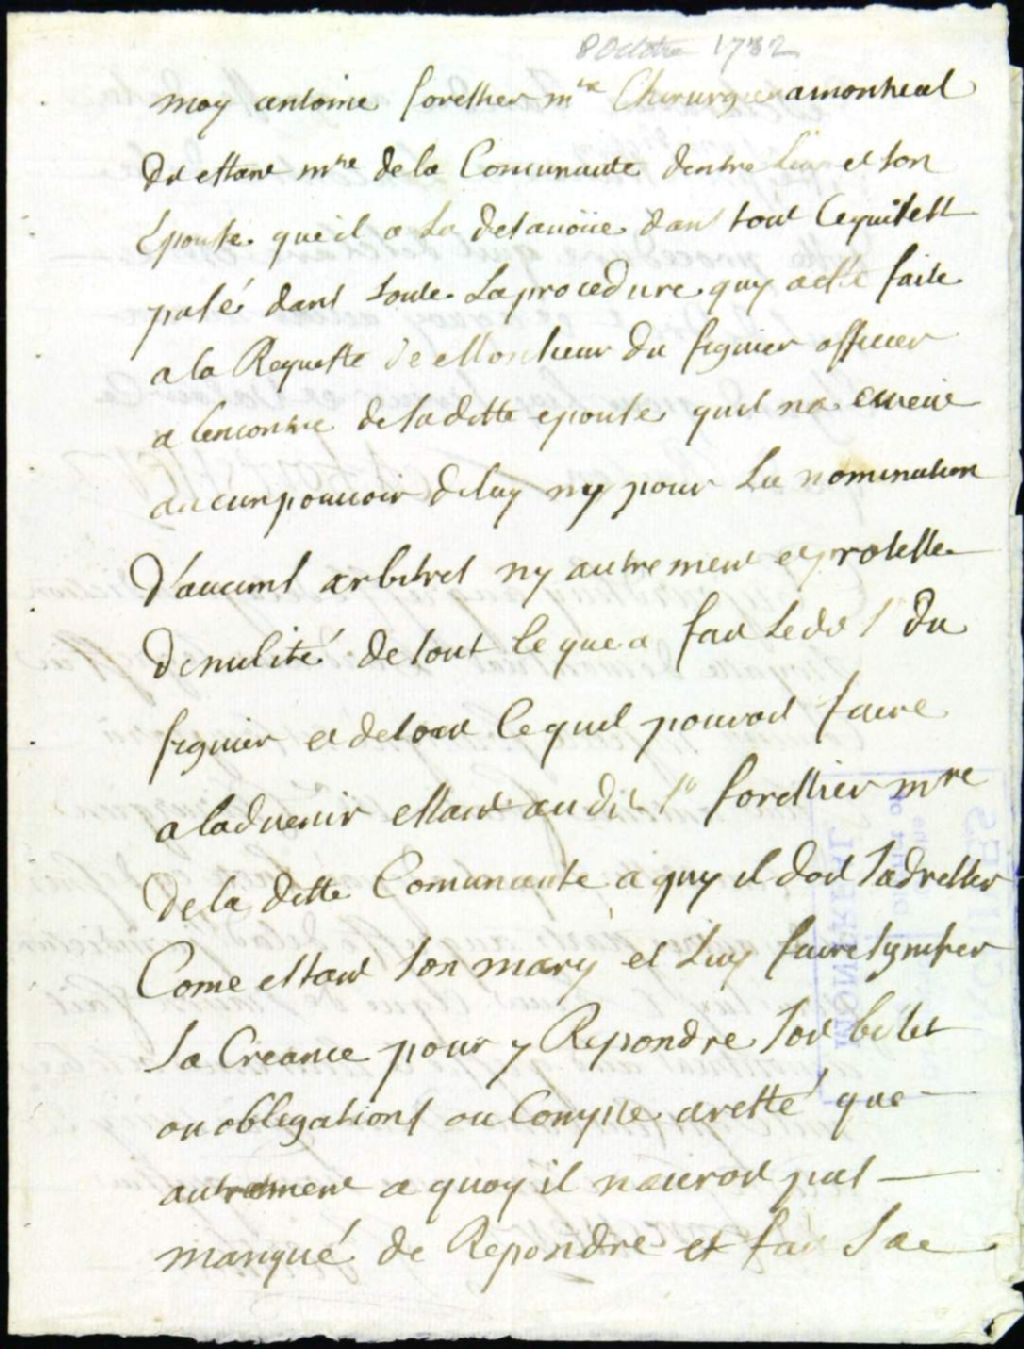 8 Octobre 1732
moy antoine forestier mtre Chirurgien a monreal
Dit estant mtre de la Comunaute dentre Luy et son
Epouse que il a La desavoüe dans tout Cequisest
passé dans toute La procedure quy a esté faite
a la Requeste de Monsieur du figuier officier
a lencontre de sa ditte epouse quil na eu
aucun pouvoir de luy ny pour La nomination
D'aucuns arbitres ny autrement et proteste
de nulité de tout ce que a fait Le dit sr du
figuier et de tout Ce quil pouroit faire
a ladvenir estant au dit sr forestier mre
De la ditte Comunaute a quy il doit sadresser
Come estant son mary et Luy faire synifier
sa Creance pour y Repondre soit bilet
ou obligations ou Compte aresté que
autrement a quoy il nauroit pas
manqué de Repondre et fait sa